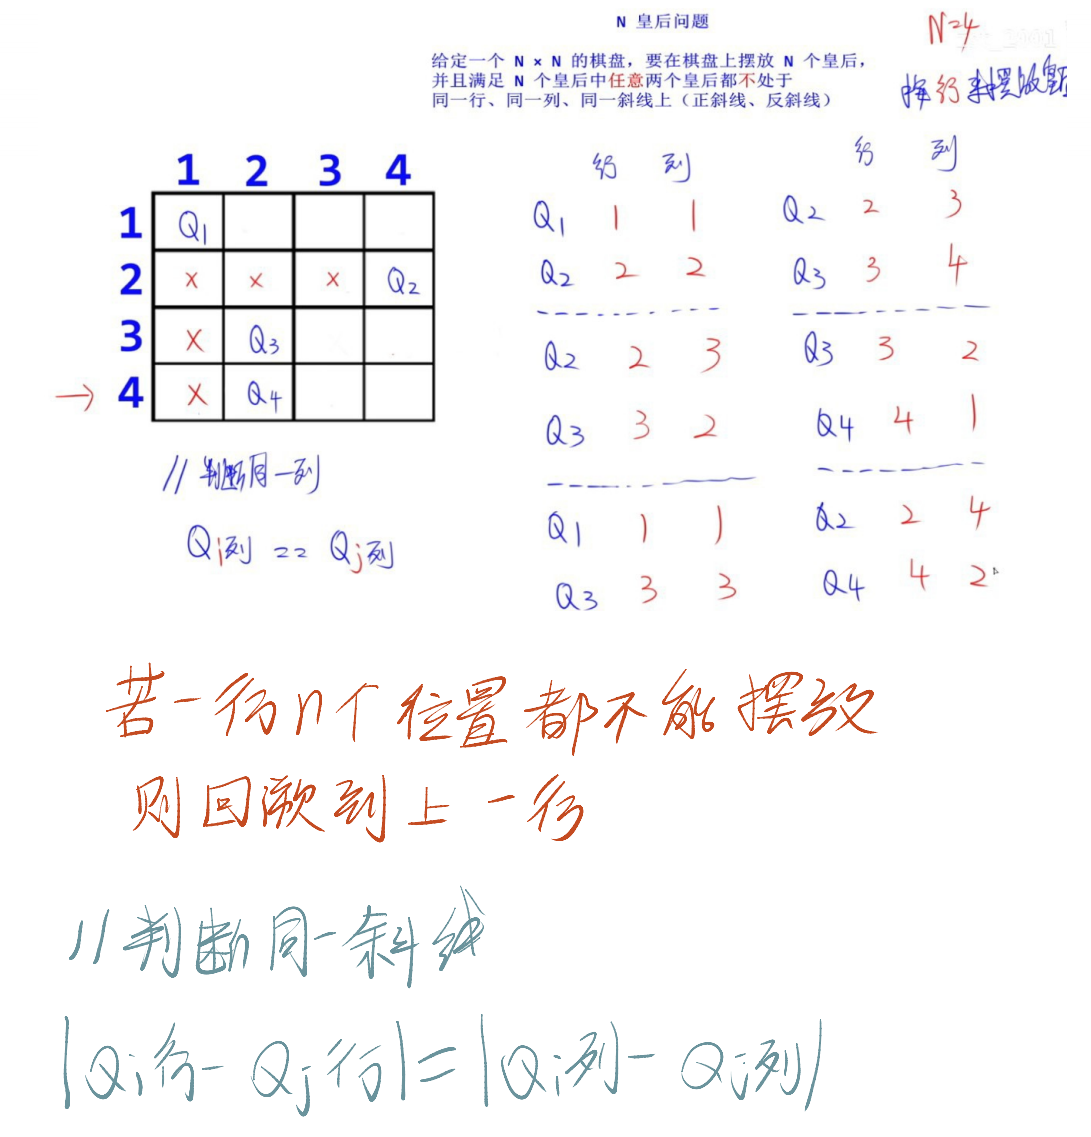 N 皇后问题
N=4
给定一个 N × N 的棋盘，要在棋盘上摆放 N 个皇后，
并且满足 N 个皇后中任意两个皇后都不处于
同一行、同一列、同一斜线上（正斜线、反斜线）
按行来摆放皇后
1 2 3 4
1 Q1
2 × × × Q2
3 × Q3
→ 4 × Q4
// 判断同一列
Qi列 == Qj列
行 列
Q1 1 1
Q2 2 2
Q2 2 3
Q3 3 2
Q1 1 1
Q3 3 3
行 列
Q2 2 3
Q3 3 4
Q3 3 2
Q4 4 1
Q2 2 4
Q4 4 2
若一行n个位置都不能摆放
则回溯到上一行
//判断同一斜线
|Qi行- Qj行|=|Qi列- Qj列|